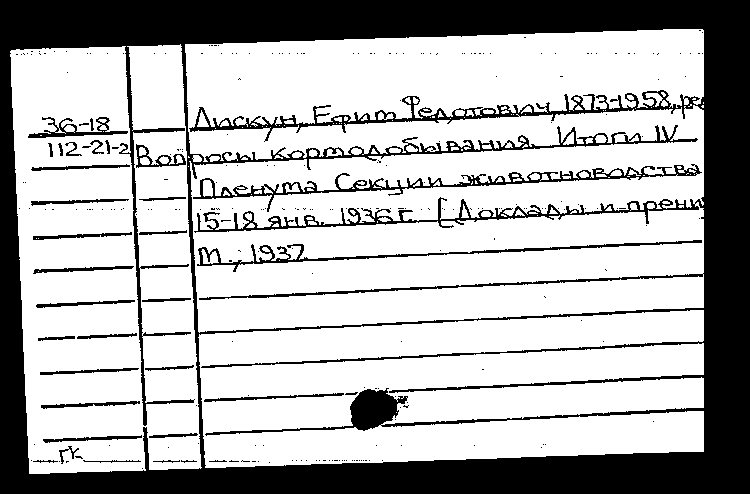 36-18 Лискун, Ефим Федотович, 1873-1958, ред
112-21-2 Вопросы кормодобывания. Итоги IV
Пленума Секции животноводства
15-18 янв. 1936 г. [Доклады и прени
М., 1937
гк